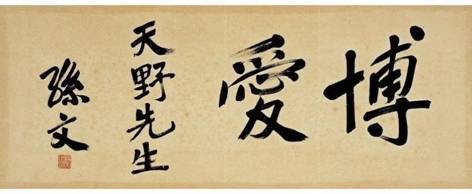 博愛
天野先生
孫文